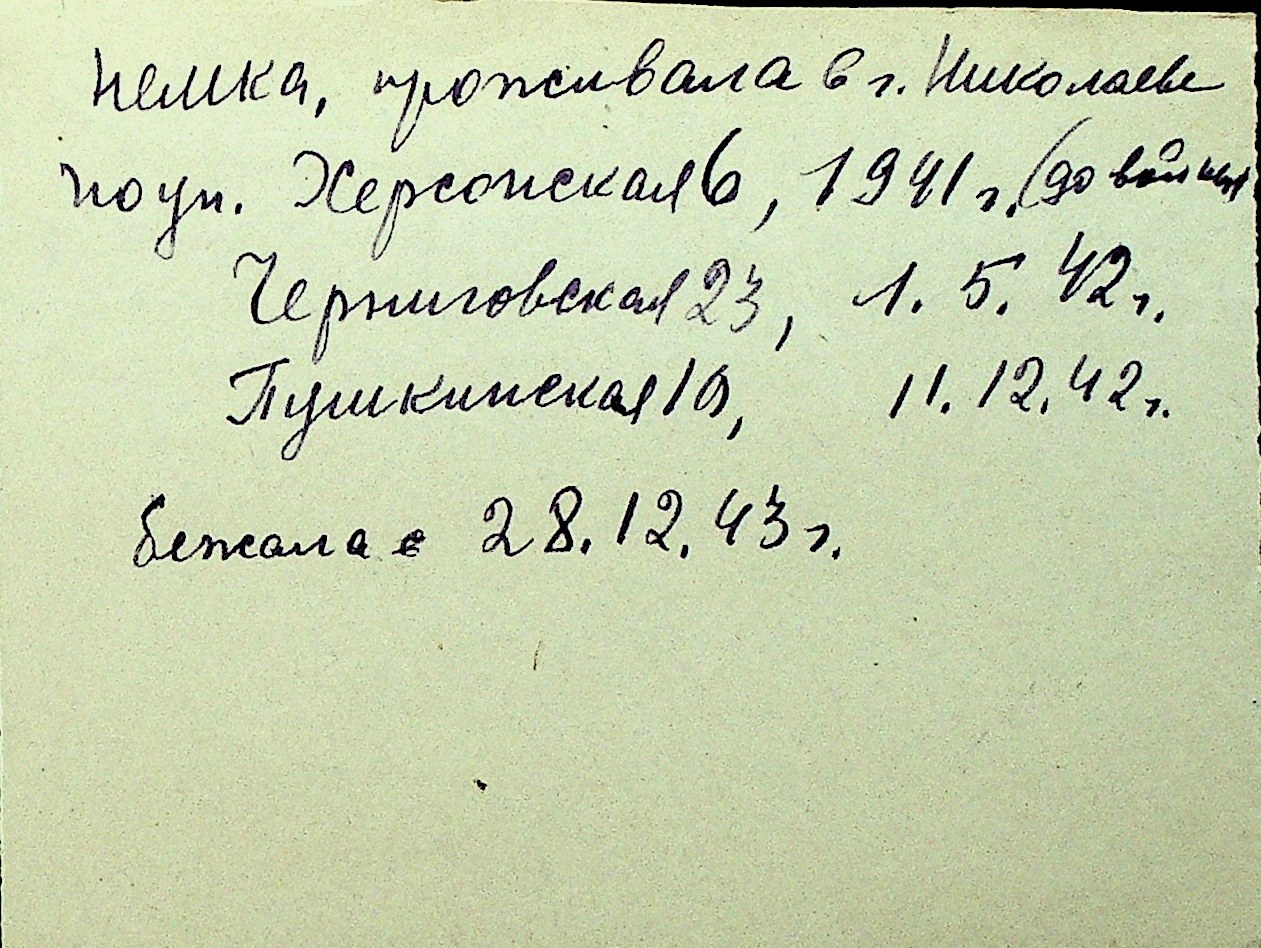 немка, проживала в г. Николаеве
по ул. Херсонская 6, 1941 г. (до войны
Черниговская 23, 1. 5. 42 г.
Пушкинская 10, 11. 12. 42 г.
бежала с 28. 12. 43 г.